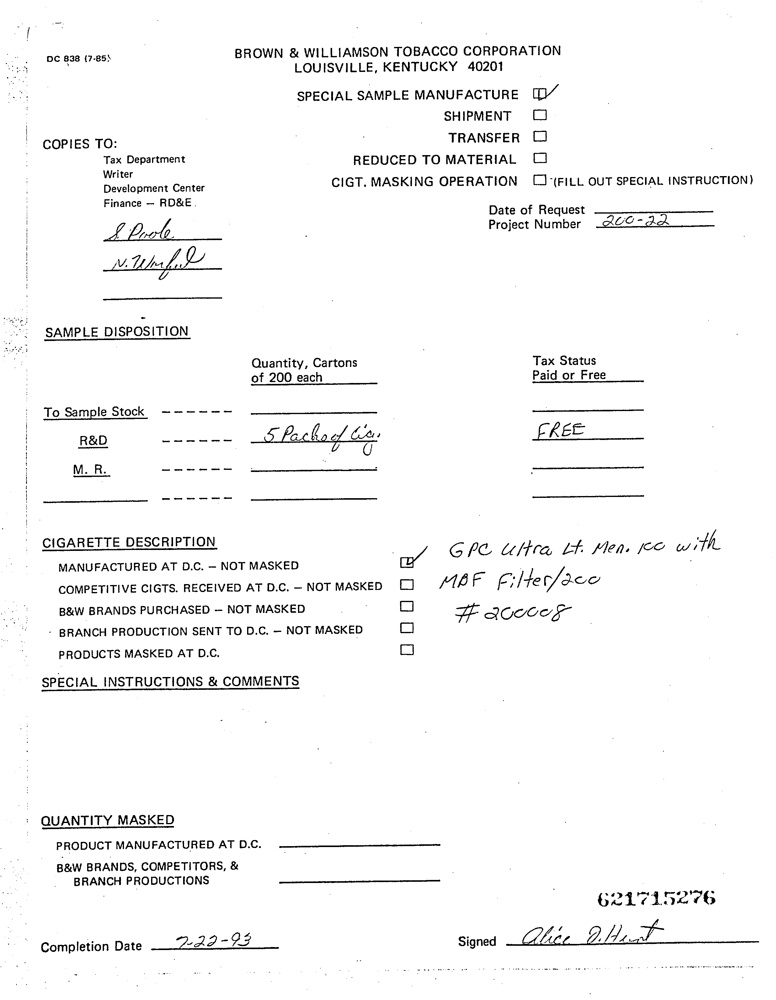 DC 838 (7-85)
BROWN & WILLIAMSON TOBACCO CORPORATION
LOUISVILLE, KENTUCKY 40201
SPECIAL SAMPLE MANUFACTURE
SHIPMENT
TRANSFER
REDUCED TO MATERIAL
CIGT. MASKING OPERATION (FILL OUT SPECIAL INSTRUCTION)
COPIES TO:
Tax Department
Writer
Development Center
Finance — RD&E
S Poole
N.
Date of Request
Project Number 200-22
SAMPLE DISPOSITION
Quantity, Cartons of 200 each
Tax Status Paid or Free
To Sample Stock
R&D 5 Packs of Cig. FREE
M. R.
CIGARETTE DESCRIPTION
MANUFACTURED AT D.C. — NOT MASKED
COMPETITIVE CIGTS. RECEIVED AT D.C. — NOT MASKED
B&W BRANDS PURCHASED — NOT MASKED
BRANCH PRODUCTION SENT TO D.C. — NOT MASKED
PRODUCTS MASKED AT D.C.
GPC Ultra Lt. Men. 100 with
MBF Filter/200
#200008
SPECIAL INSTRUCTIONS & COMMENTS
QUANTITY MASKED
PRODUCT MANUFACTURED AT D.C.
B&W BRANDS, COMPETITORS, &
BRANCH PRODUCTIONS
621715276
Completion Date 7-22-93
Signed Alice D. Hunt